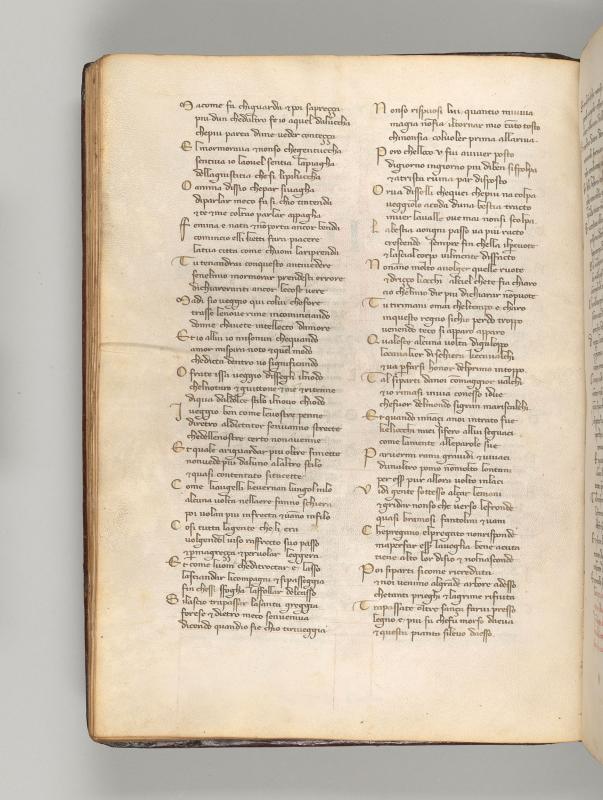 Ma come fa chiguarda & poi sapreçça
piu dun chedaltro fe io aquel daluccha
chepiu parea dime voler conteçça
El mormorava & nonso chegentuccha
sentiva io laovel sentia lapiagha
dellagiustitia chesi lipiluccha
O anima dissio chepar sivagha
diparlar meco fa si chio tintenda
& te & me coltuo parlar appagha
Femina e nata & nonporta ancor benda
comincio elli cheti fara piacere
lamia citta come chuom lariprenda
Tu tenandrai conquesto antivedere
senelmio mormorar prendesti errore
dichiareranti ancor lecose vere
Ma di sio veggio qui colui chefore
trasse lenove rime incominciando
donne chavete intellecto damore
Et io allui io misonun chequando
amor mispira noto & quel modo
chedicta dentro vo significando
O frate issa veggio dissegli ilnodo
chelnotaro & guittone & me & ritenne
diqua daldolce stilo ilnovo chiodo
I veggio ben come levostre penne
diretro aldictator senvanno strecte
chedellenostre certo nonavenne
Et quale ariguardar piu oltre simetto
nonvede piu daluno alaltro stilo
& quasi contentato sitacette
Come liaugelli chevernan lungol nilo
alcuna volta nellaere fanno schiera
poi volan piu infretta & vanno infilo
Cosi tutta lagente cheli era
volgendol viso raffrecto suo passo
& permagreçça & pervolar leggera
Et come luom cheditrottar e lasso
lasciandar licompagni & sipasseggia
fin chessi sfogha laffollar delcasso
Silascio trapassar lasanta greggia
forese & dietro meco senveniva
dicendo quandio fie chio tiriveggia
Nonso rispuosi lui quantio miviva
magia nonfia iltornar mio tanto tosto
chinonsia colvoler prima allariva
Pero chelloco v fui aviver posto
digiorno ingiorno piu diben sispolpa
& atrista ruina par disposto
Or va disselli chequei chepiu na colpa
veggiolo acoda duna bestia tracto
inver lavalle ove mai nonsi scolpa
La bestia aongni passo va piu racto
crescendo sempre fin chella ilpercuote
& lascial corpo vilmente disfacto
Nonanno molto avolger quelle ruote
& driççò liocchi alciel chete fia chiaro
cio chelmio dir piu dichiarar nonpuote
Tu tirimani omai cheltempo e charo
inquesto regno sichio perdo troppo
venendo teco si apparo apparo
Qualesce alcuna volta digaloppo
locavalier dischiera checavalchi
& va pfarsi honor delprimo intoppo
Tal siparti danoi conmaggior valchi
& io rimasi invia conesso idue
chefuor delmondo sigran mariscalchi
Et quando innaci anoi intrato fue
keliocchi miei sifero allui seguaci
come lamente alleparole sue
Parvermi rami gravidi & vivaci
dunaltro pomo nonmolto lontani
per essere pur allora volto inlaci
Vidi gente sottesso alçar lemani
& gridar nonso che verso lefronde
quasi bramosi fantolini & vani
Chepregano elpregato nonrisponde
maperfar esser lavoglia bene acuta
tiene alto lor disio & nolnasconde
Poi siparti sicome ricreduta
& noi venimo algrande arbore adesso
chetanti prieghi & lagrime rifiuta
Trapassate oltre sança farvi presso
legno e piu su chefu morso daeva
& questa pianta silevo daesso.